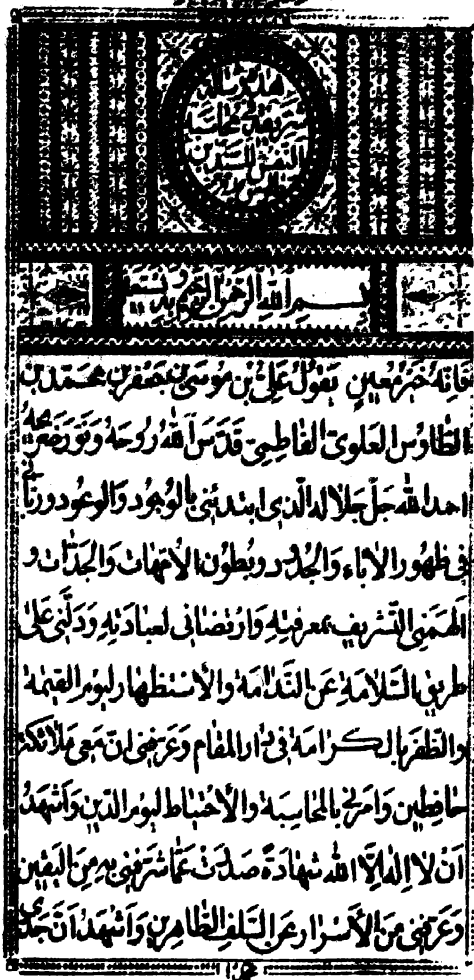 هذه رسالة
شريفة في محاسبة
النفس للسيد بن
طاوس
بسم الله الرحمن الرحيم وبه نستعين
فانه خير معين يقول علي بن موسى بن جعفر بن محمد بن
الطاوس العلوى الفاطمى قدس الله روحه ونور ضريحه
احمد الله جل جلاله الذى ابتدئنى بالوجود والوعود وربانى
فى ظهور الاباء والجدود وبطون الامهات والجدات و
الهمنى التشريف بمعرفته وارتضانى لعبادته ودلنى على
طريق السلامة عن الندامة والاستظهار ليوم القيمة
والظفر بالكرامة فى دار المقام وعرفنى ان معى ملائكة
حافظين وامرنى بالمحاسبة والاحتياط ليوم الدين واشهد
ان لا اله الا الله شهادة صدرت عما شرفنى به من اليقين
وعرفنى من الاسرار عن السلف الطاهرين واشهد ان جدى